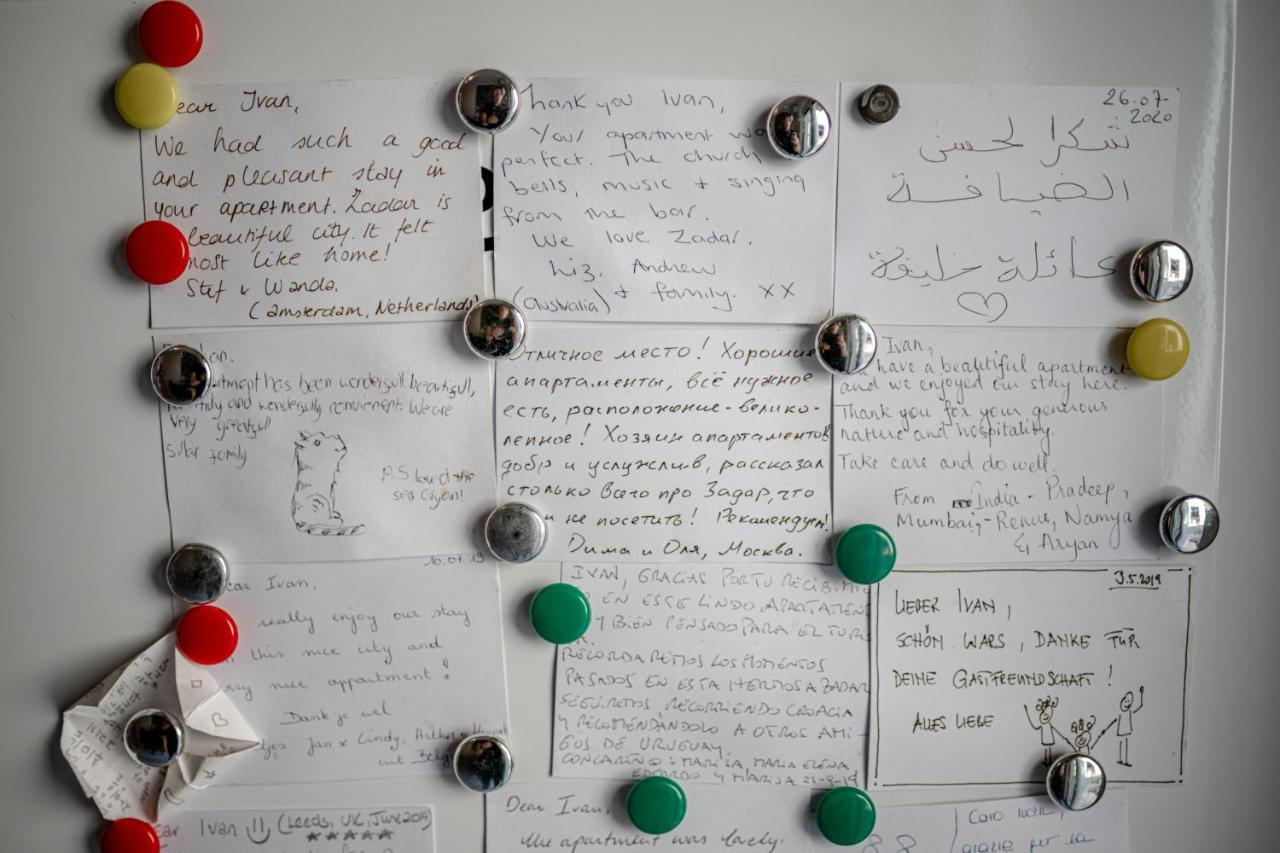 Dear Ivan,
We had such a good
and pleasant stay in
your apartment. Zadar is
beautiful city. It felt
most like home!
Stef & Wanda.
(amsterdam, Netherlands)
Thank you Ivan,
Your apartment was
perfect. The church
bells, music + singing
from the bar.
We love Zadar.
Andrew
(australia) + family. xx
26.07-
2020
شكرا لحسن
الضيافة
عائلة خليفة
has been wonderfull, beautifull,
and wonderfully convienent. We are
very greatfull
family
P.S loved the
sea Organ!
Отличное место! Хорошие
апартаменты, всё нужное
есть, расположение - велико-
лепное! Хозяин апартаментов
добр и услужлив, рассказал
столько всего про Задар, что
и не посетить! Рекомендуем!
Дима и Оля, Москва.
Ivan,
have a beautiful apartment
and we enjoyed our stay here.
Thank you for your generous
nature and hospitality.
Take care and do well.
From India - Pradeep,
Mumbai, - Renu, Namya
& Aryan
16.07.19
Dear Ivan,
really enjoy our stay
this nice city and
very nice appartment!
Dank je wel
Jan & Cindy,
uit
IVAN, GRACIAS POR TU RECIBIMI
EN ESTE LINDO APARTAMEN
Y BIEN PENSADO PARA EL TURIS
RECORDAREMOS LOS MOMENTOS
PASADOS EN ESTA HERMOSA ZADAR
SEGUIREMOS RECORRIENDO CROACIA
Y RECOMENDÁNDOLO A OTROS AMI-
GOS DE URUGUAY.
CON CARIÑO: MARISA, MARIA ELENA
EDUARDO Y MARISA 21-9-19
3.5.2019
LIEBER IVAN,
SCHÖN WARS, DANKE FÜR
DEINE GASTFREUNDSCHAFT!
ALLES LIEBE
Dear Ivan (Leeds, UK, June 2019)
Dear Ivan,
The apartment was lovely.
Caro Ivan,
grazie per la